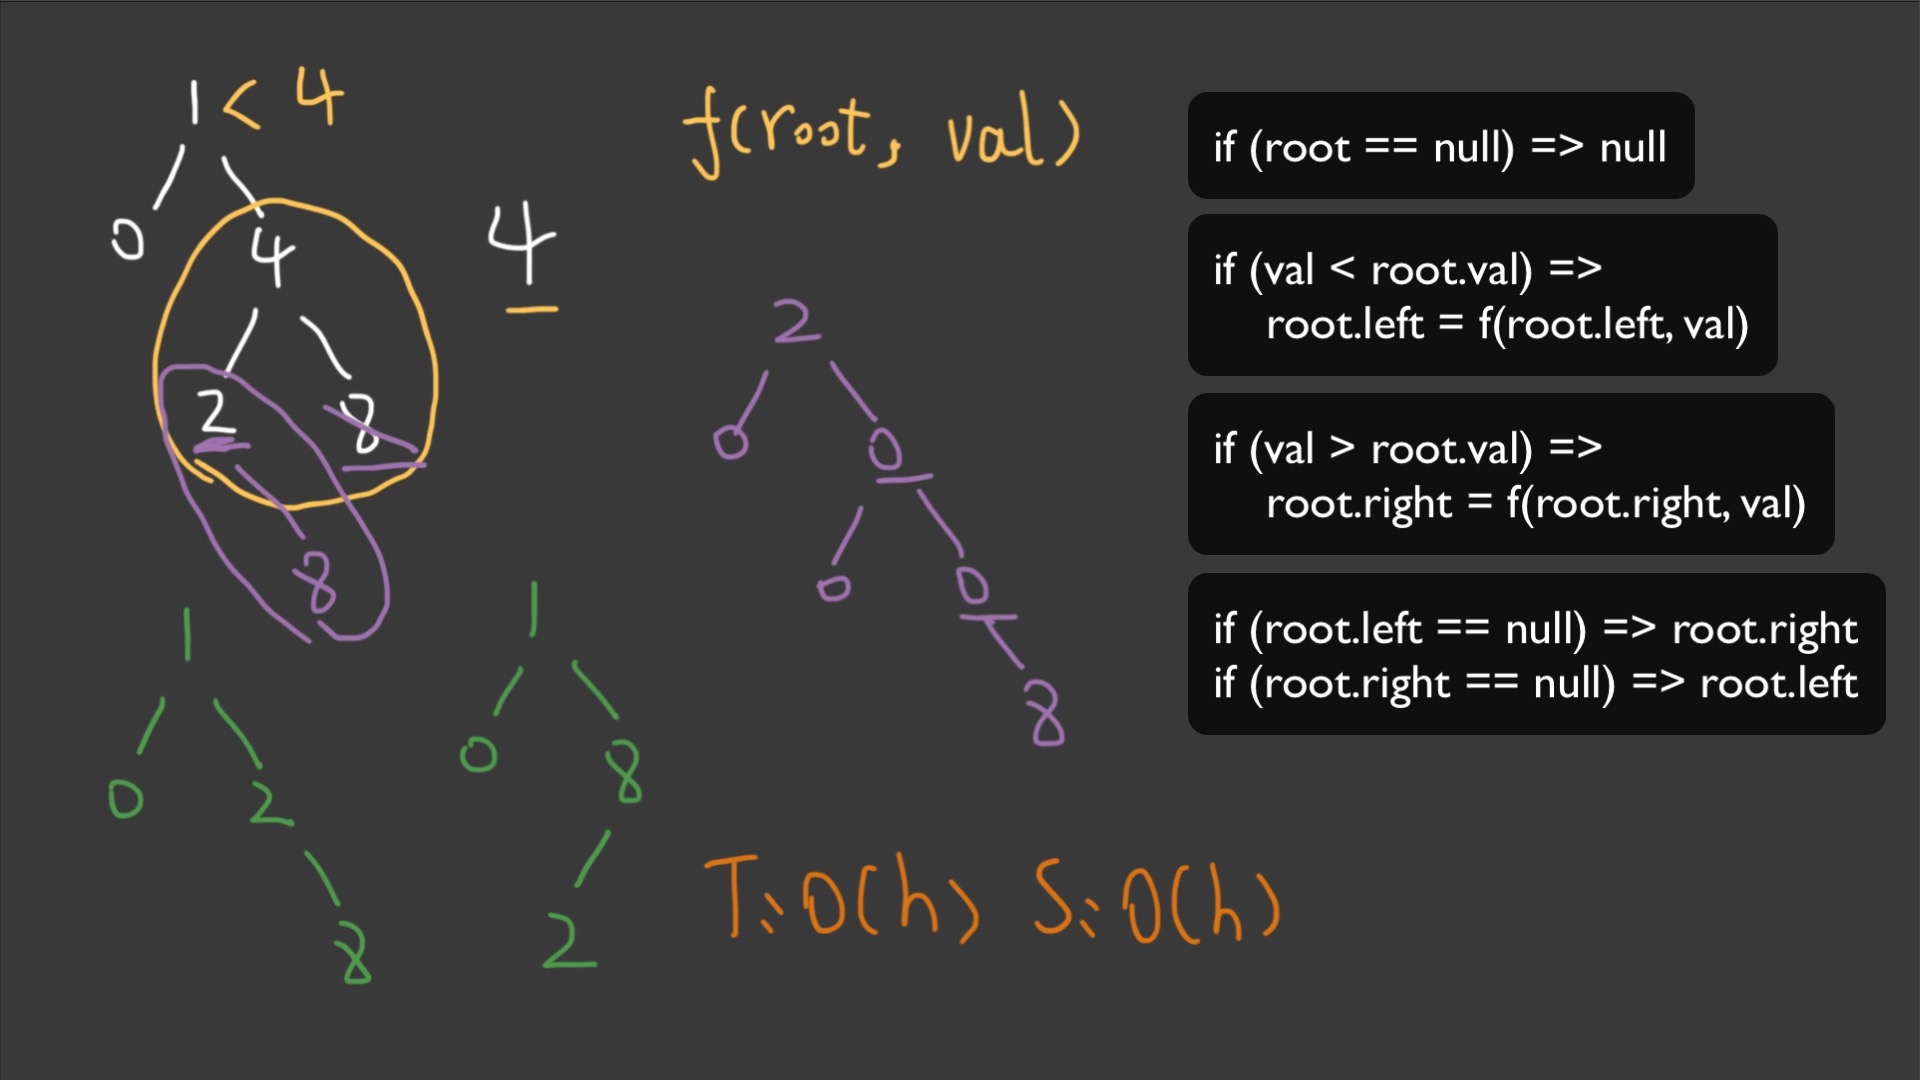 1 < 4
0 4
2 8
8
4
f(root, val)
2
0 0
0 0
8
1
0 2
8
1
0 8
2
T: O(h) S: O(h)
if (root == null) => null
if (val < root.val) =>
root.left = f(root.left, val)
if (val > root.val) =>
root.right = f(root.right, val)
if (root.left == null) => root.right
if (root.right == null) => root.left